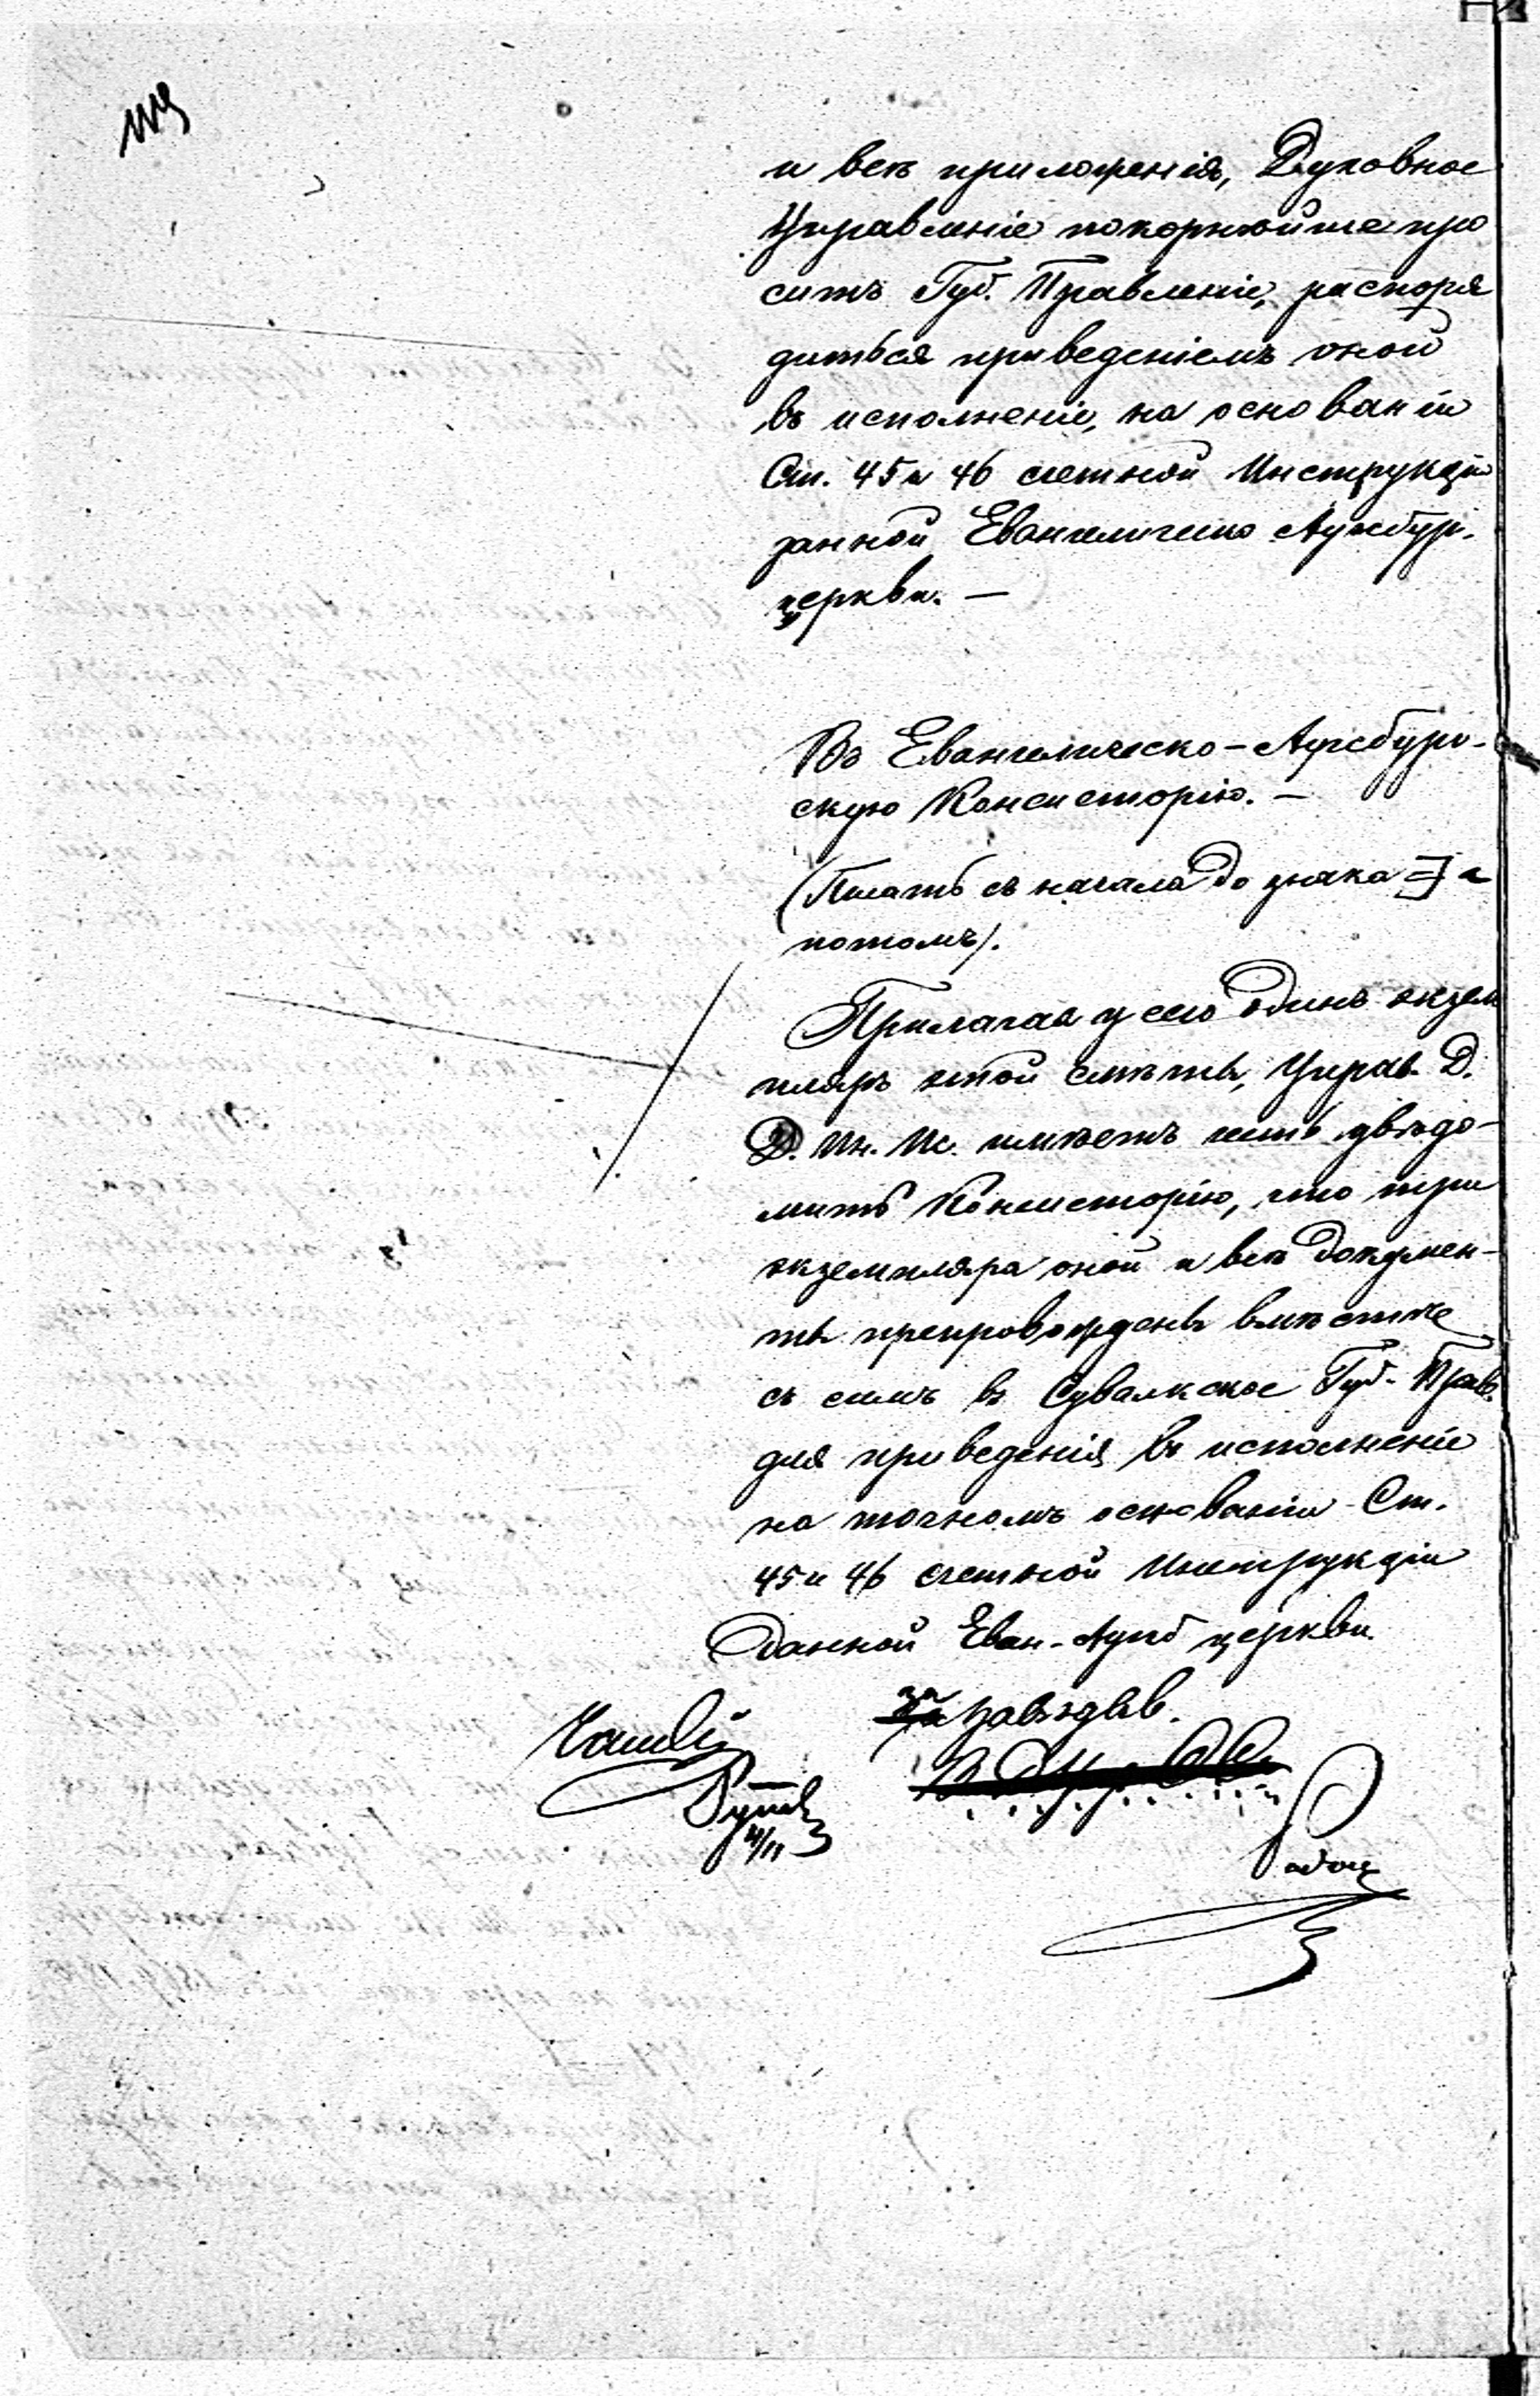 и всѣ приложенія, Духовное
Управленіе покорнѣйше про
ситъ Губ. Правленіе, распоря
диться приведеніемъ оной
въ исполненіе, на основаніи
Ст. 45 и 46 счетной Инструкціи
данной Евангелическо Аугсбур.
церкви. —
Въ Евангелическо-Аугсбург-
скую Консисторію. —
(Писать съ начала до знака =] и
потомъ).
Прилагая у сего одинъ экзем
пляръ этой смѣты, Управ. Д.
Д. Ин. Ис. имѣетъ честь увѣдо-
мить Консисторію, что три
экземпляра оной и всѣ докумен-
ты препровождены вмѣстѣ
съ симъ въ Сувалкское Губ. Прав.
для приведенія въ исполненіе
на точномъ основаніи Ст.
45 и 46 счетной Инструкціи
данной Еван-Аугсб церкви.
за Завѣдыв.